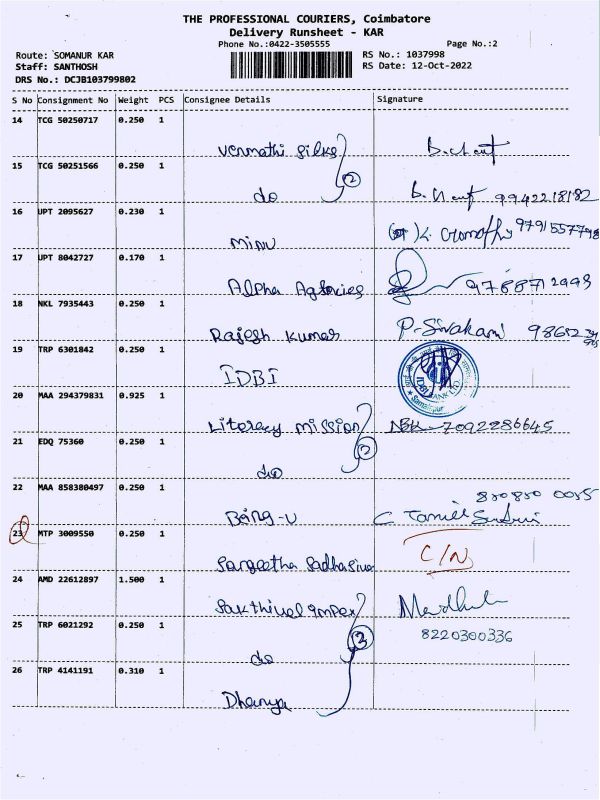 THE PROFESSIONAL COURIERS, Coimbatore
Delivery Runsheet - KAR
Phone No.:0422-3505555
Page No.:2
Route: SOMANUR KAR
RS No.: 1037998
Staff: SANTHOSH
RS Date: 12-Oct-2022
DRS No.: DCJB103799802
S No Consignment No Weight PCS Consignee Details Signature
14 TCG 50250717 0.250 1
15 TCG 50251566 0.250 1
2
do 9942218182
16 UPT 2095627 0.230 1
minu
17 UPT 8042727 0.170 1
Alpha Agencies
18 NKL 7935443 0.250 1
Rajesh Kumar P-Sivakami
19 TRP 6301842 0.250 1
IDBI
20 MAA 294379831 0.925 1
Literacy mission 7092286645
21 EDQ 75360 0.250 1
2
do
22 MAA 858380497 0.250 1
23 MTP 3009550 0.250 1
C/N
Sangeetha Sadhasiva
24 AMD 22612897 1.500 1
Sakthivel impex
25 TRP 6021292 0.250 1
8220300336
3
do
26 TRP 4141191 0.310 1
Dhanya